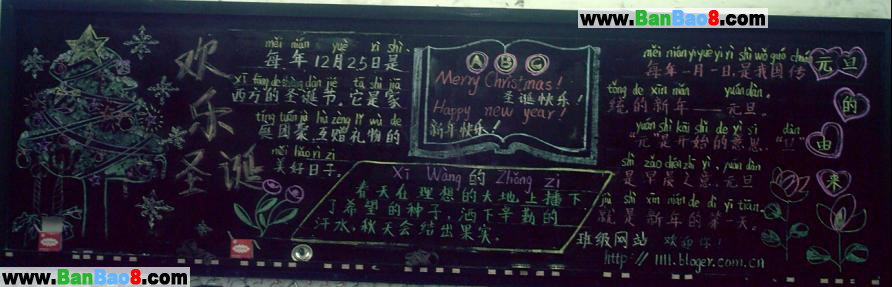 www.BanBao8.com
欢乐圣诞
měi nián yuè rì shì
每年12月25日是
xī fāng de shèng dàn jié tā shì jiā
西方的圣诞节。它是家
tíng tuán jù hù zèng lǐ wù de
庭团聚互赠礼物的
měi hǎo rì zi
美好日子。
A B C
Merry Christmas!
圣诞快乐!
Happy new year!
新年快乐!
Xī Wàng 的 Zhǒng zi
春天在理想的大地上播下
了希望的种子,洒下辛勤的
汗水,秋天会结出果实。
元旦的由来
měi nián yī yuè yī rì shì wǒ guó chuán
每年一月一日,是我国传
tǒng de xīn nián yuán dàn
统的新年——元旦。
yuán shì kāi shǐ de yì si dàn
"元"是开始的意思,"旦"
shì zǎo chén zhī yì yuán dàn
是早晨之意,元旦
jiù shì xīn nián de dì yī tiān
就是新年的第一天。
班级网站 欢迎你!
http://1111.bloger.com.cn
www.BanBao8.com
www.BanBao8.com